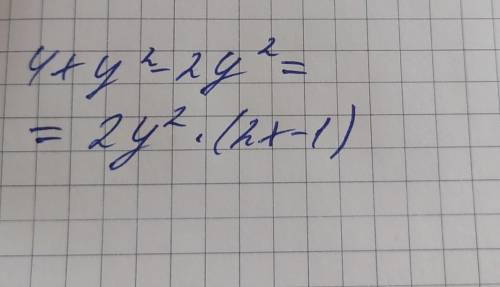 4x y² - 2y² =
= 2y² · (2x - 1)